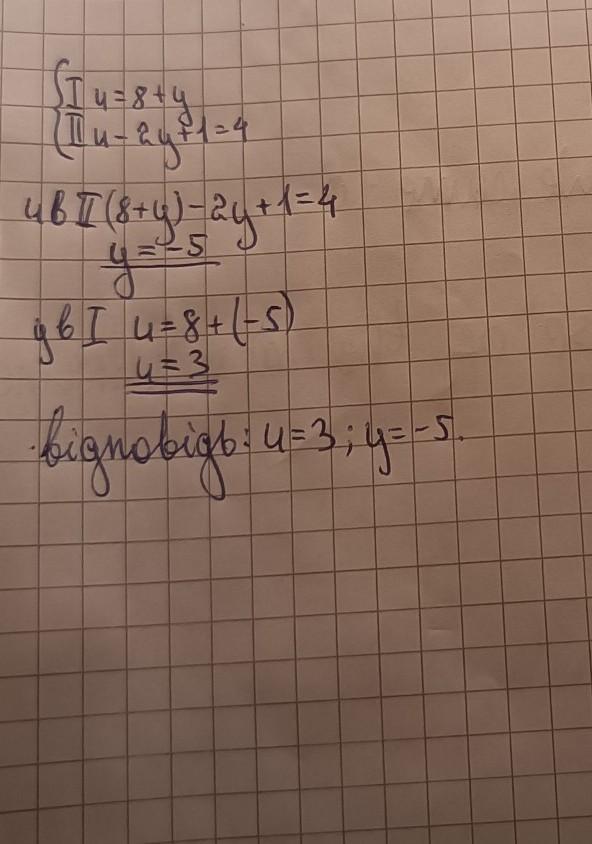 I u = 8 + y
II u - 2y + 1 = 4
u в II (8+y) - 2y + 1 = 4
y = -5
y в I u = 8 + (-5)
u = 3
Відповідь: u = 3; y = -5.